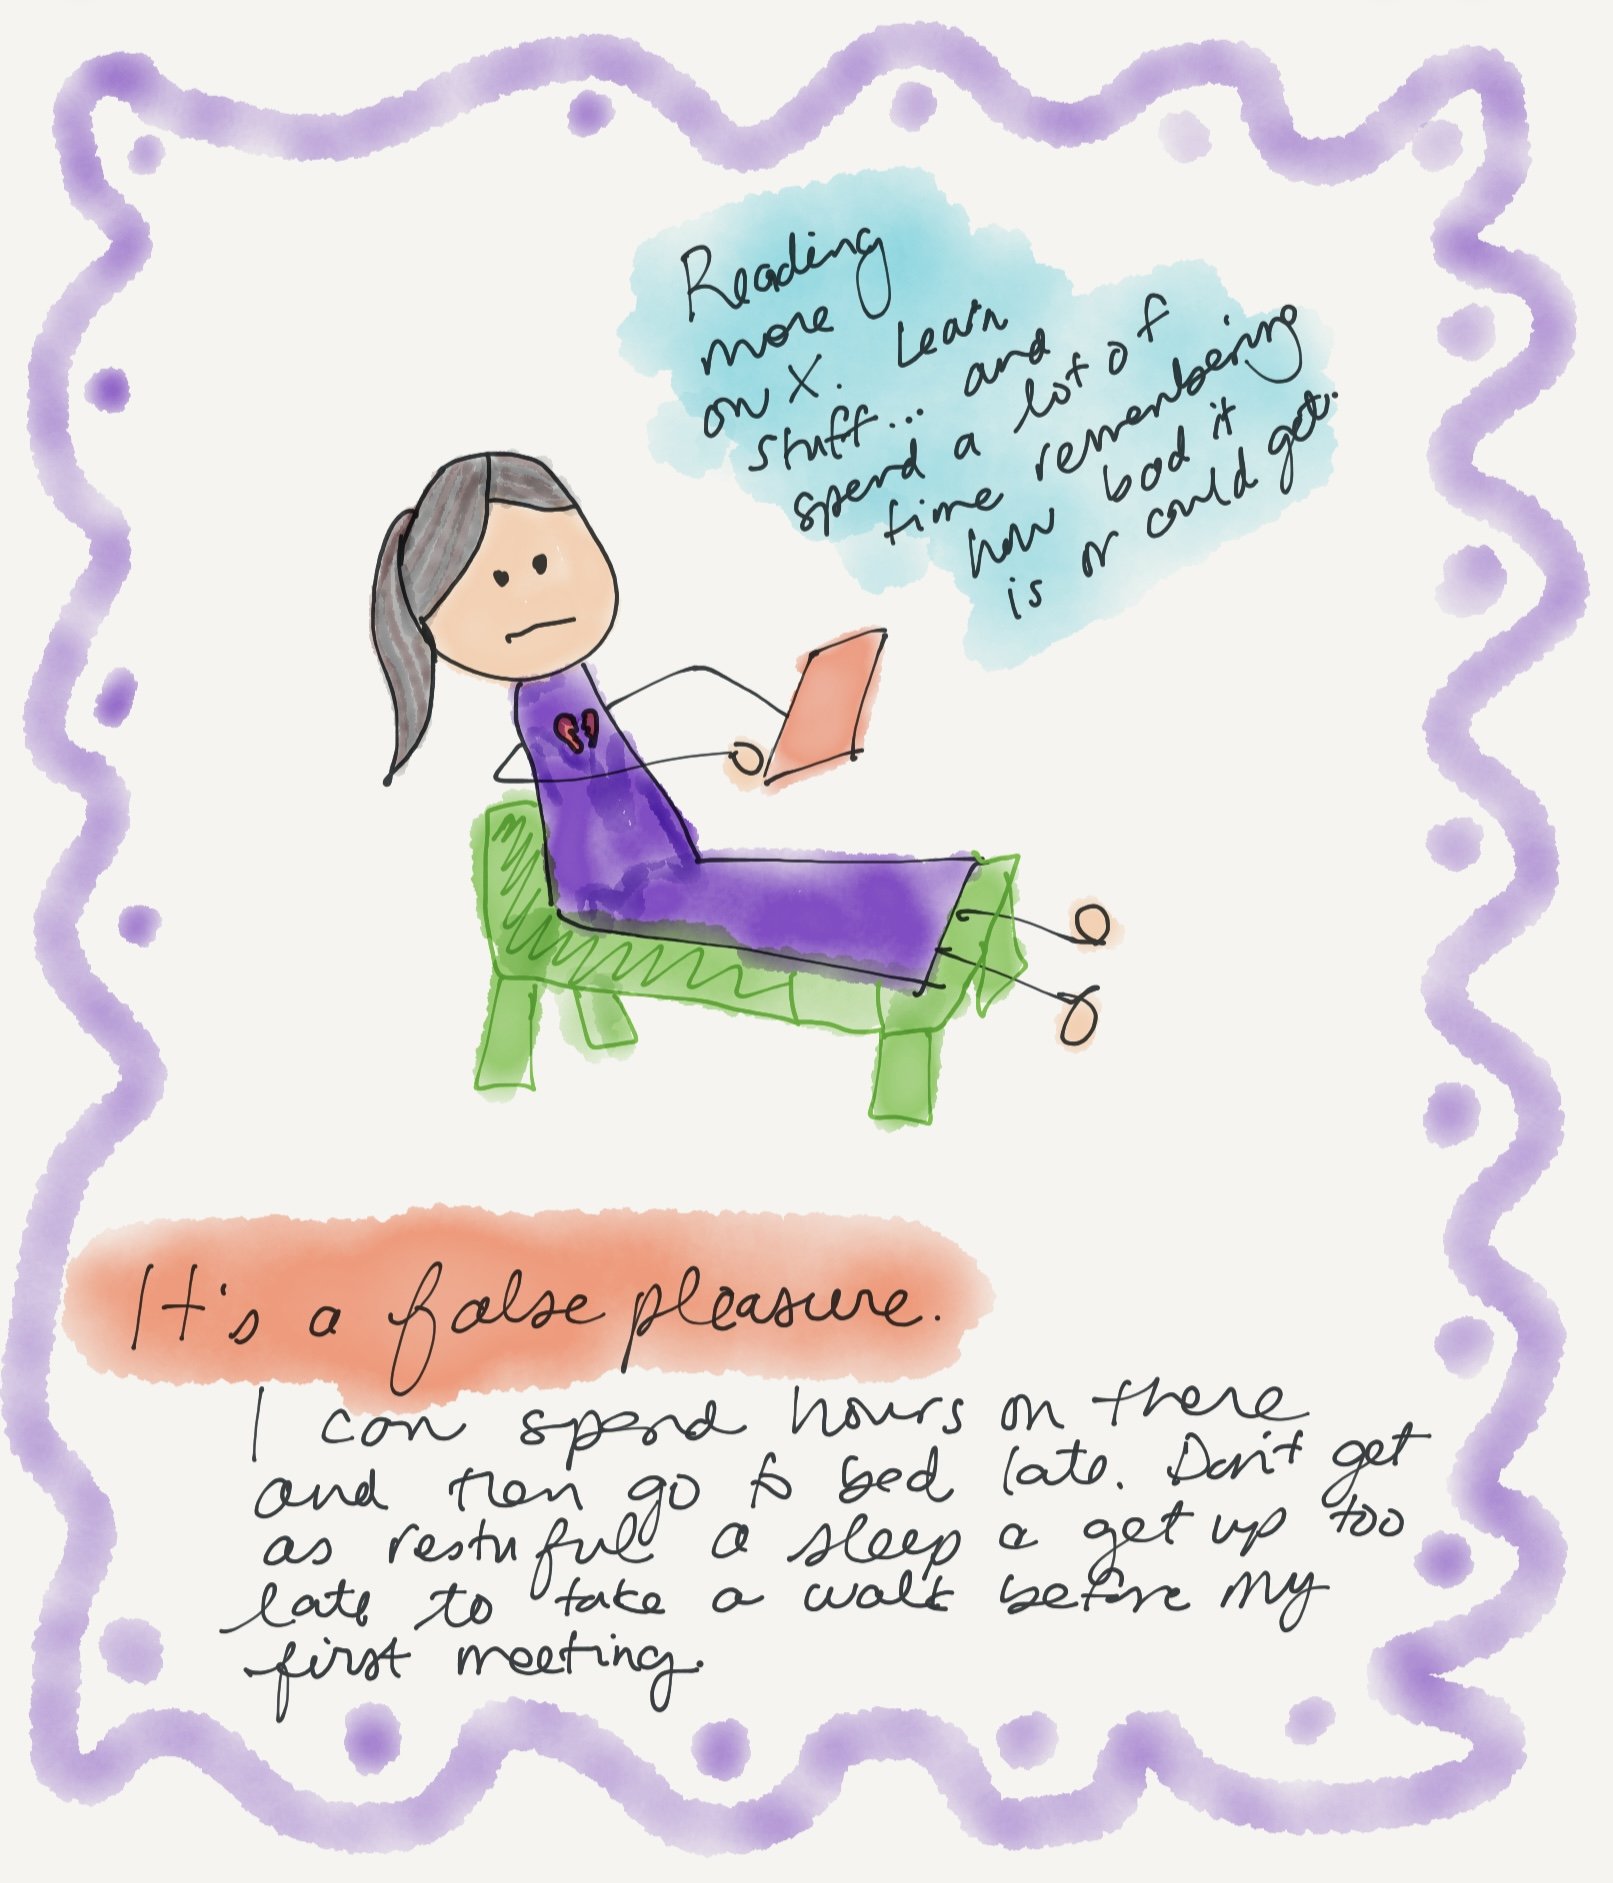 Reading
more
on X. Learn
stuff... and
spend a lot of
time remembering
how bad it
is or could get.
It's a false pleasure.
I can spend hours on there
and then go to bed late. Don't get
as restu ful a sleep a get up too
late to take a walk before my
first meeting.